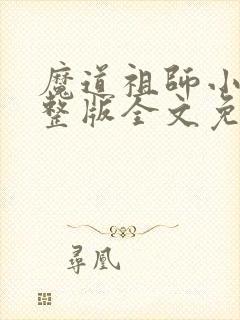 魔道祖師小
整版全文免
尋凰